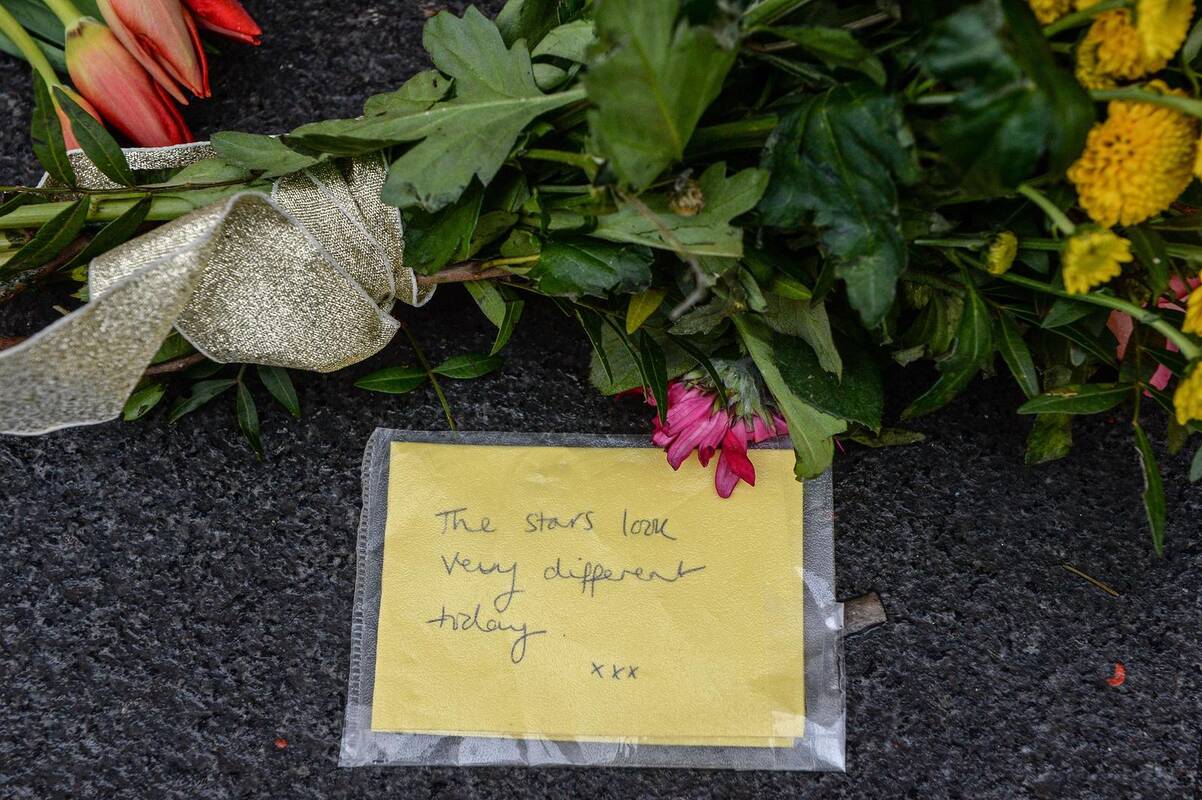 The stars look
very different
today.
xxx